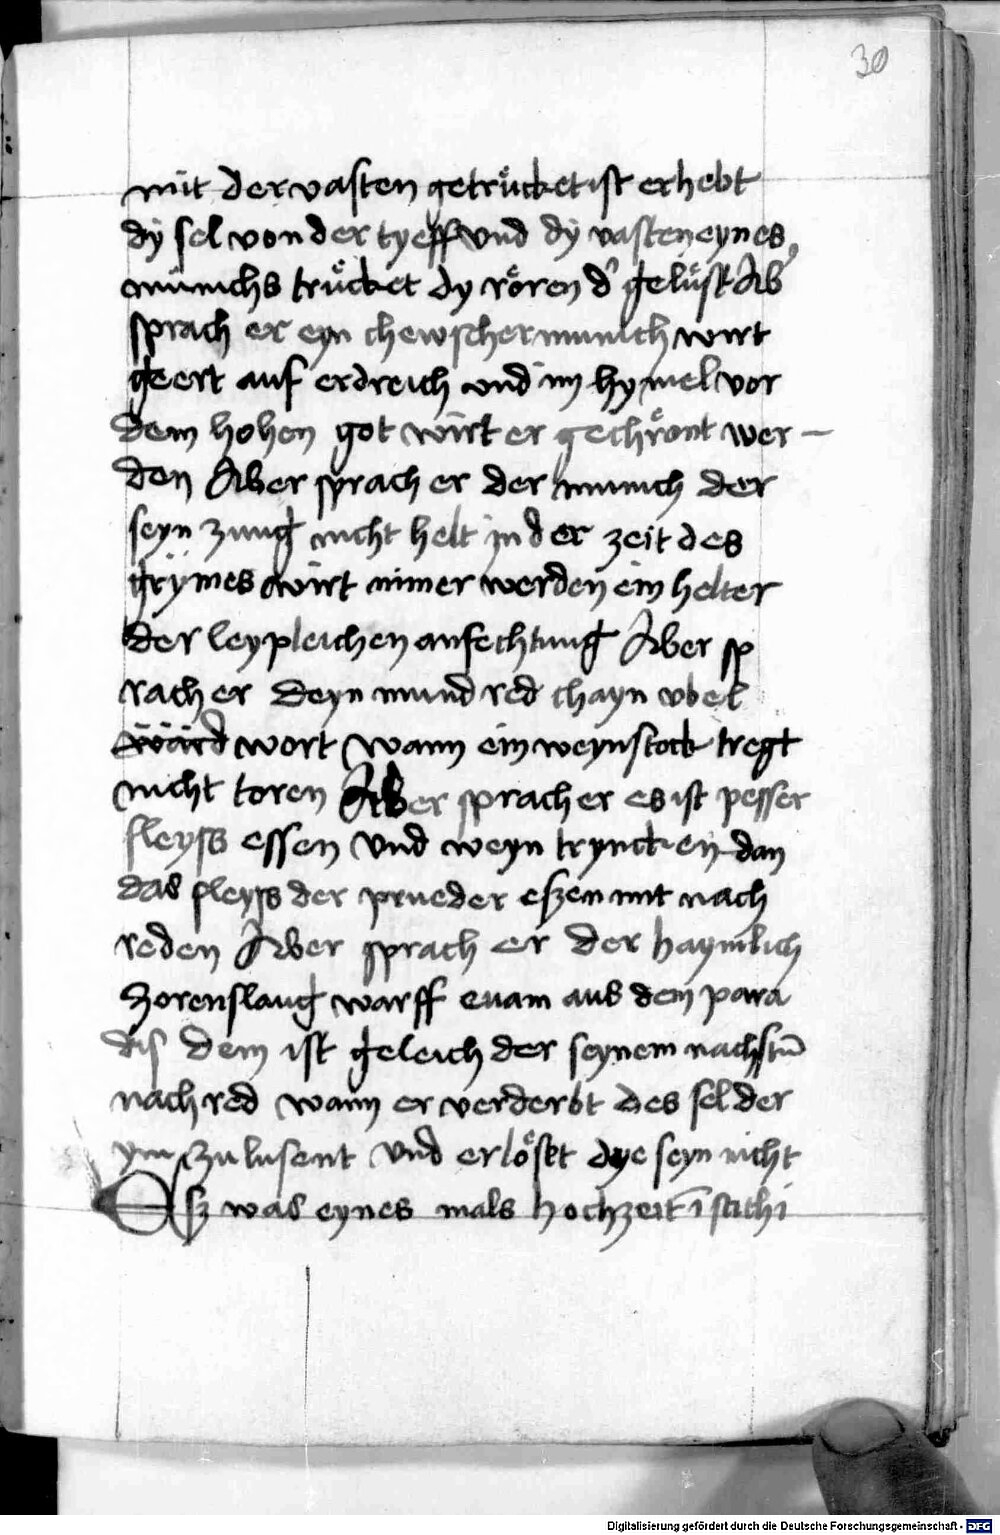 30
mit der vasten getrücket ist erhebt
dÿ sel von der tyeff vnd dÿ vasten eynes
münichs trücket dy rören d' gelüst Ab'
sprach er eyn chewscher munich wirt
geert auf erdreich vnd im hymel vor
dem hohen got wirt er gechrönt wer-
den Aber sprach er der munich der
seyn zung nicht helt in der zeit des
grÿmes wirt nimer werden ein helter
der leypleichen anfechtung Aber sp
rach er deyn mund red chayn vbel
wärd wort wann ein weynstock tregt
nicht toren Aber sprach er es ist pesser
fleyss essen vnd weyn tryncken dan
das fleyss der prueder eszen mit nach
reden Aber sprach er der haymlich
Zorenslang warff euam aus dem para
dis dem ist geleich der seynem nachstn̄
nach red wann er verderbt des sel der
ym zu lusent vnd erlöset dye seyn nicht
Esz was eynes mals hochzeit ī scithi
Digitalisierung gefördert durch die Deutsche Forschungsgemeinschaft - DFG